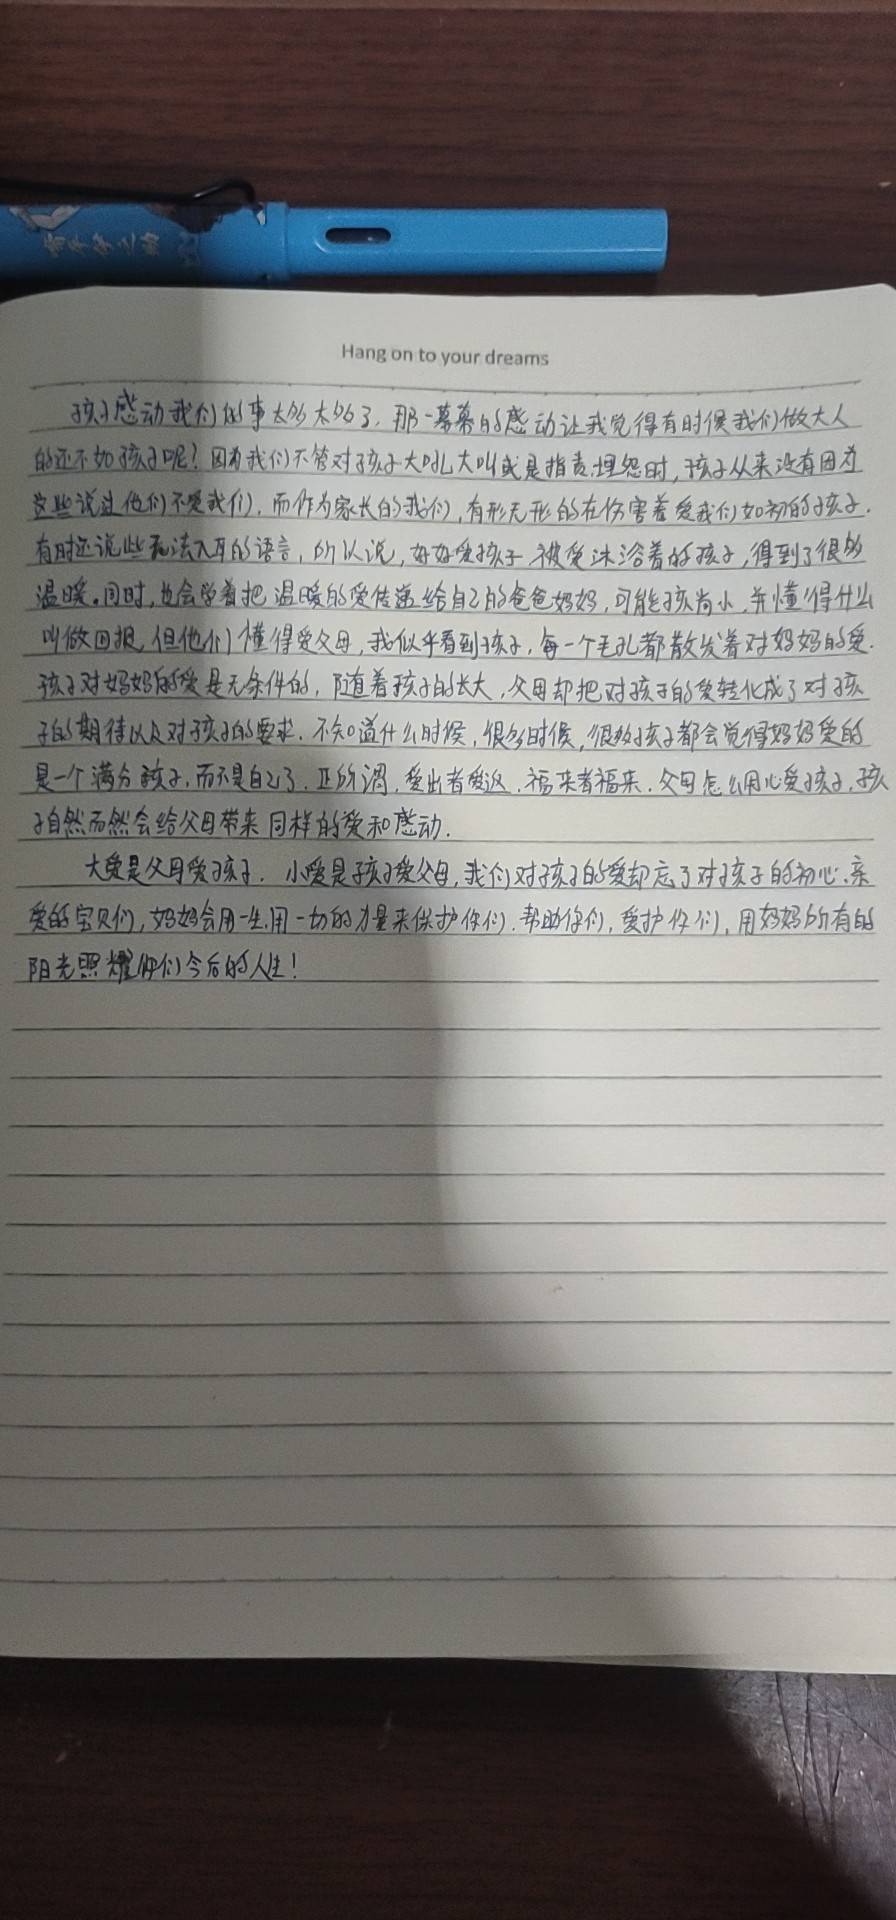 嘴平伊之助
Hang on to your dreams
孩子感动我们的事太多太多了，那一幕幕的感动让我觉得有时候我们做大人
的还不如孩子呢？因为我们不管对孩子大吼大叫或是指责埋怨时，孩子从来没有因为
这些说过他们不爱我们，而作为家长的我们，有形无形的在伤害着爱我们如初的孩子．
有时还说些无法入耳的语言，所以说，好好爱孩子 被爱沐浴着的孩子，得到了很多
温暖。同时，也会学着把温暖的爱传递给自己的爸爸妈妈，可能孩尚小，并懂得什么
叫做回报，但他们懂得爱父母，我似乎看到孩子，每一个毛孔都散发着对妈妈的爱．
孩子对妈妈的爱是无条件的，随着孩子的长大，父母却把对孩子的爱转化成了对孩
子的期待以及对孩子的要求．不知道什么时候，很多时候，很多孩子都会觉得妈妈爱的
是一个满分孩子，而不是自己了．正所谓，爱出者爱返．福来者福来．父母怎么用心爱孩子，孩
子自然而然会给父母带来同样的爱和感动．
大爱是父母爱孩子．小爱是孩子爱父母，我们对孩子的爱却忘了对孩子的初心．亲
爱的宝贝们，妈妈会用一生．用一切的力量来保护你们．帮助你们，爱护你们，用妈妈所有的
阳光照耀你们今后的人生！